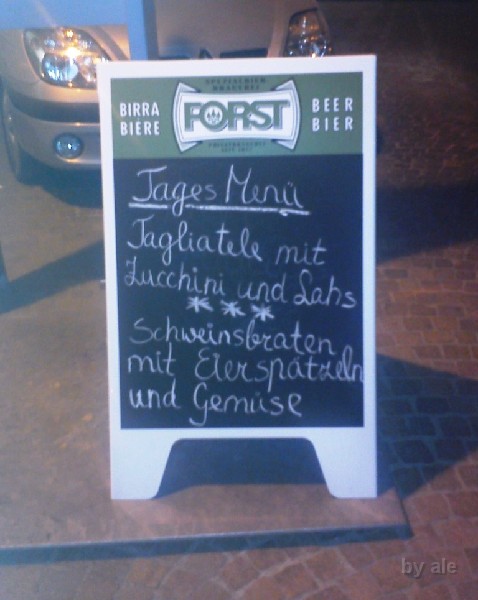 SPEZIALBIER
BRAUEREI
BIRRA
BIERE
FORST
BEER
BIER
Tages Menü
Tagliatele mit
Zucchini und Lahs
***
Schweinsbraten
mit Eierspätzeln
und Gemüse
by ale